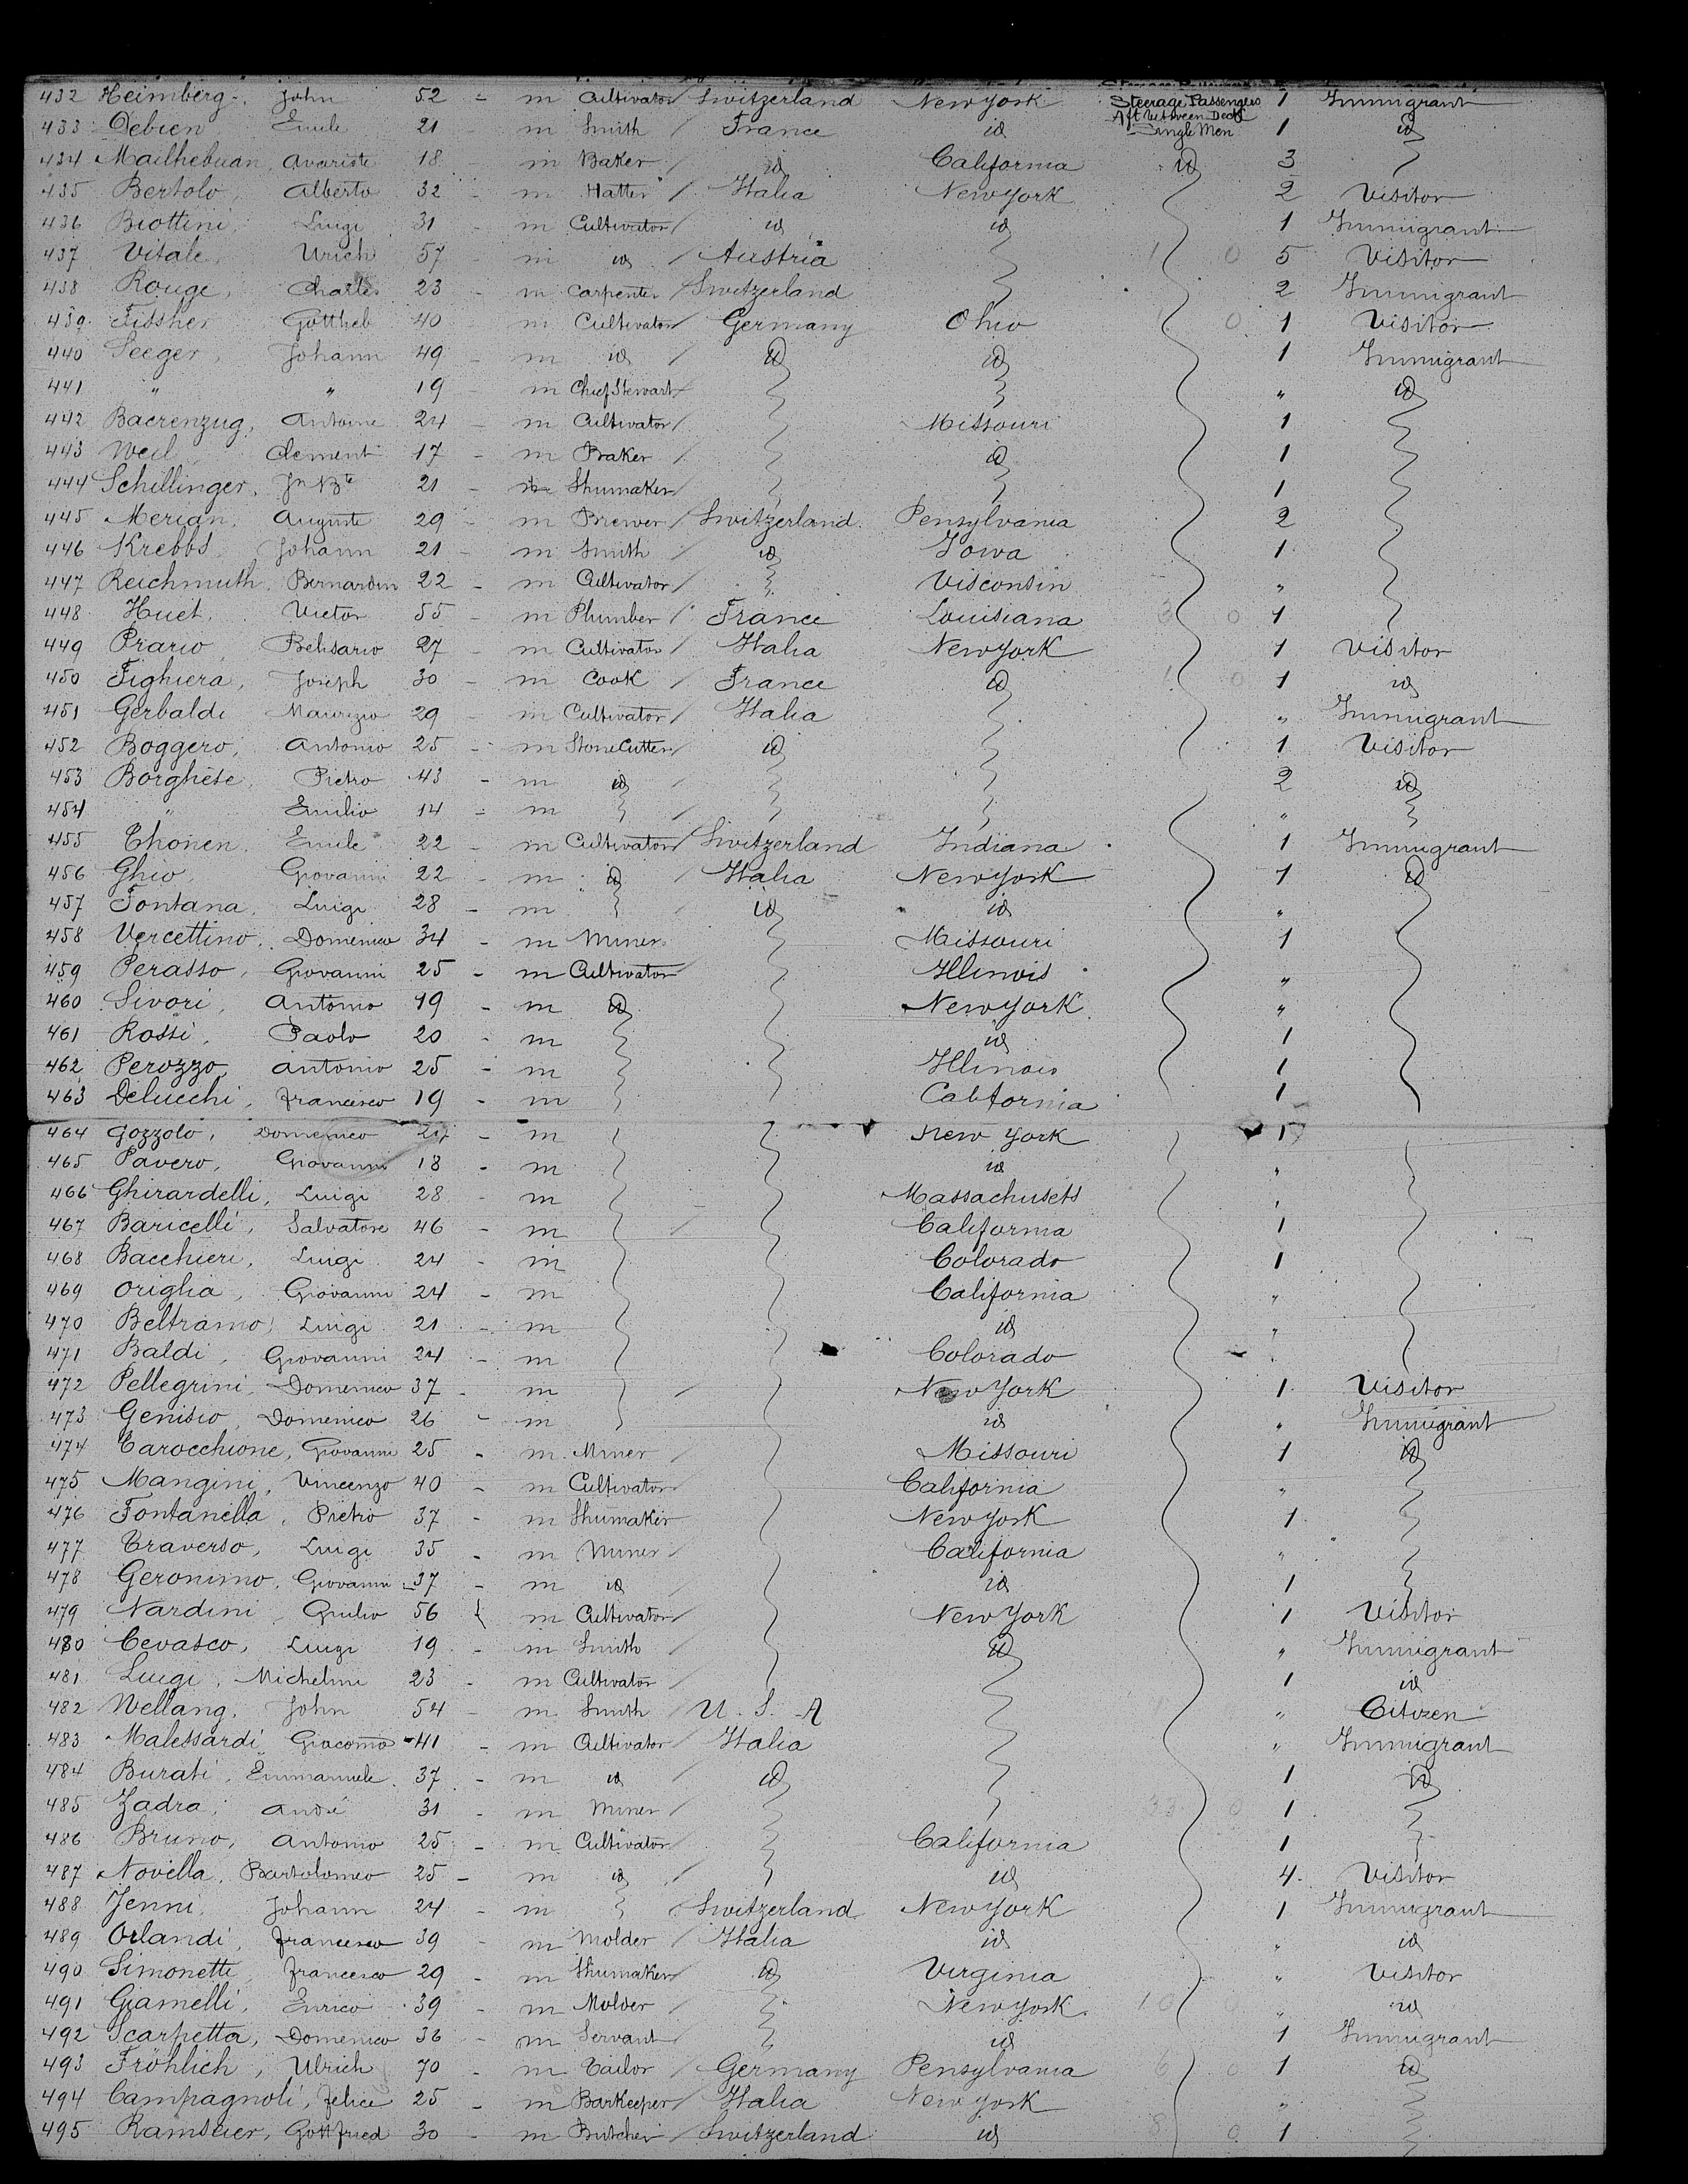 432 Heimberg, John 52 - m Cultivator / Switzerland New York Steerage Passengers Aft between Deck Single Men 1 Immigrant
433 Debien Emile 21 m Smith / France id 1 id
434 Mailhebuan, Avariste 18 m Baker / id California id 3
435 Bertolo, Alberto 32 - m Hatter / Italia New York 2 Visitor
436 Biottini, Luigi 31 - m Cultivator / id id 1 Immigrant
437 Vitale, Urich 57 - m id / Austria 1 0 5 Visitor
438 Rouge, Charles 23 - m Carpenter / Switzerland 2 Immigrant
439 Fissher Gottlieb 40 m Cultivator / Germany Ohio 0 1 Visitor
440 Seeger, Johann 49 - m id / id id 1 Immigrant
441 " " 19 - m Chief Stewart / " id
442 Baerenzug, Antoine 24 - m Cultivator / Missouri 1
443 Weil, Clement 17 - m Baker / id 1
444 Schillinger, Jn Bte 21 - m Shumaker / 1
445 Merian, Auguste 29 - m Brewer / Switzerland Pensylvania 2
446 Krebbs, Johann 21 - m Smith / id Iowa 1
447 Reichmuth, Bernardin 22 - m Cultivator / Visconsin "
448 Huet, Victor 55 - m Plumber / France Louisiana 3 0 1
449 Prario, Belisario 27 - m Cultivator / Italia New York 1 Visitor
450 Fighiera, Joseph 30 - m Cook / France id 1 0 1 id
451 Gerbaldi Maurizio 29 - m Cultivator / Italia " Immigrant
452 Boggero, Antonio 25 - m Stone Cutter / id 1 Visitor
453 Borghese, Pietro 43 - m id 2 id
454 " Emilio 14 - m "
455 Thonen, Emile 22 - m Cultivator / Switzerland Indiana 1 Immigrant
456 Ghio, Giovanni 22 - m id / Italia New York 1 id
457 Fontana, Luigi 28 - m id id "
458 Vercettino, Domenico 34 - m Miner Missouri 1
459 Perasso, Giovanni 25 - m Cultivator Illinois "
460 Sivori, Antonio 19 - m id New York "
461 Rossi, Paolo 20 - m id 1
462 Perozzo, Antonio 25 - m Illinois 1
463 Delucchi, Francesco 19 - m California 1
464 Gozzolo, Domenico 27 - m New York 1
465 Pavero, Giovanni 18 - m id "
466 Ghirardelli, Luigi 28 - m Massachusets "
467 Baricelli, Salvatore 46 - m / California 1
468 Bacchieri, Luigi 24 - m Colorado 1
469 Origlia, Giovanni 24 - m California "
470 Beltramo, Luigi 21 - m id "
471 Baldi, Giovanni 24 - m Colorado "
472 Pellegrini, Domenico 37 - m / New York 1 Visitor
473 Genisio, Domenico 26 - m id " Immigrant
474 Carocchione, Giovanni 25 - m Miner / Missouri 1 id
475 Mangini, Vincenzo 40 - m Cultivator California "
476 Fontanella, Pietro 37 - m Shumaker New York 1
477 Traverso, Luigi 35 - m Miner / California "
478 Geronimo, Giovanni 37 - m id / id 1
479 Nardini, Giulio 56 m Cultivator / New York 1 Visitor
480 Cevasco, Luigi 19 - m Smith / id " Immigrant
481 Luigi, Michelini 23 - m Cultivator / 1 id
482 Wellang, John 54 - m Smith / U. S. A " Citizen
483 Malessardi Giacomo 41 - m Cultivator / Italia " Immigrant
484 Burati, Emmanuele 37 - m id / id 1 id
485 Zadra, André 31 - m Miner / 33 0 1
486 Bruno, Antonio 25 - m Cultivator / California 1
487 Novella, Bartolomeo 25 - m id / id 4 Visitor
488 Jenni, Johann 24 - m Switzerland New York 1 Immigrant
489 Orlandi, Francesco 39 - m Molder / Italia id " id
490 Simonetti, Francesco 29 - m Shumaker / id Virginia " Visitor
491 Giamelli, Enrico 39 - m Molder / New York 10 " id
492 Scarpetta, Domenico 36 - m Servant / id 1 Immigrant
493 Fröhlich, Ulrich 70 - m Tailor / Germany Pensylvania 6 0 1 id
494 Campagnoli, Felice 25 - m Barkeeper / Italia New York "
495 Ramseier, Gottfried 30 - m Butcher / Switzerland id 8 0 1